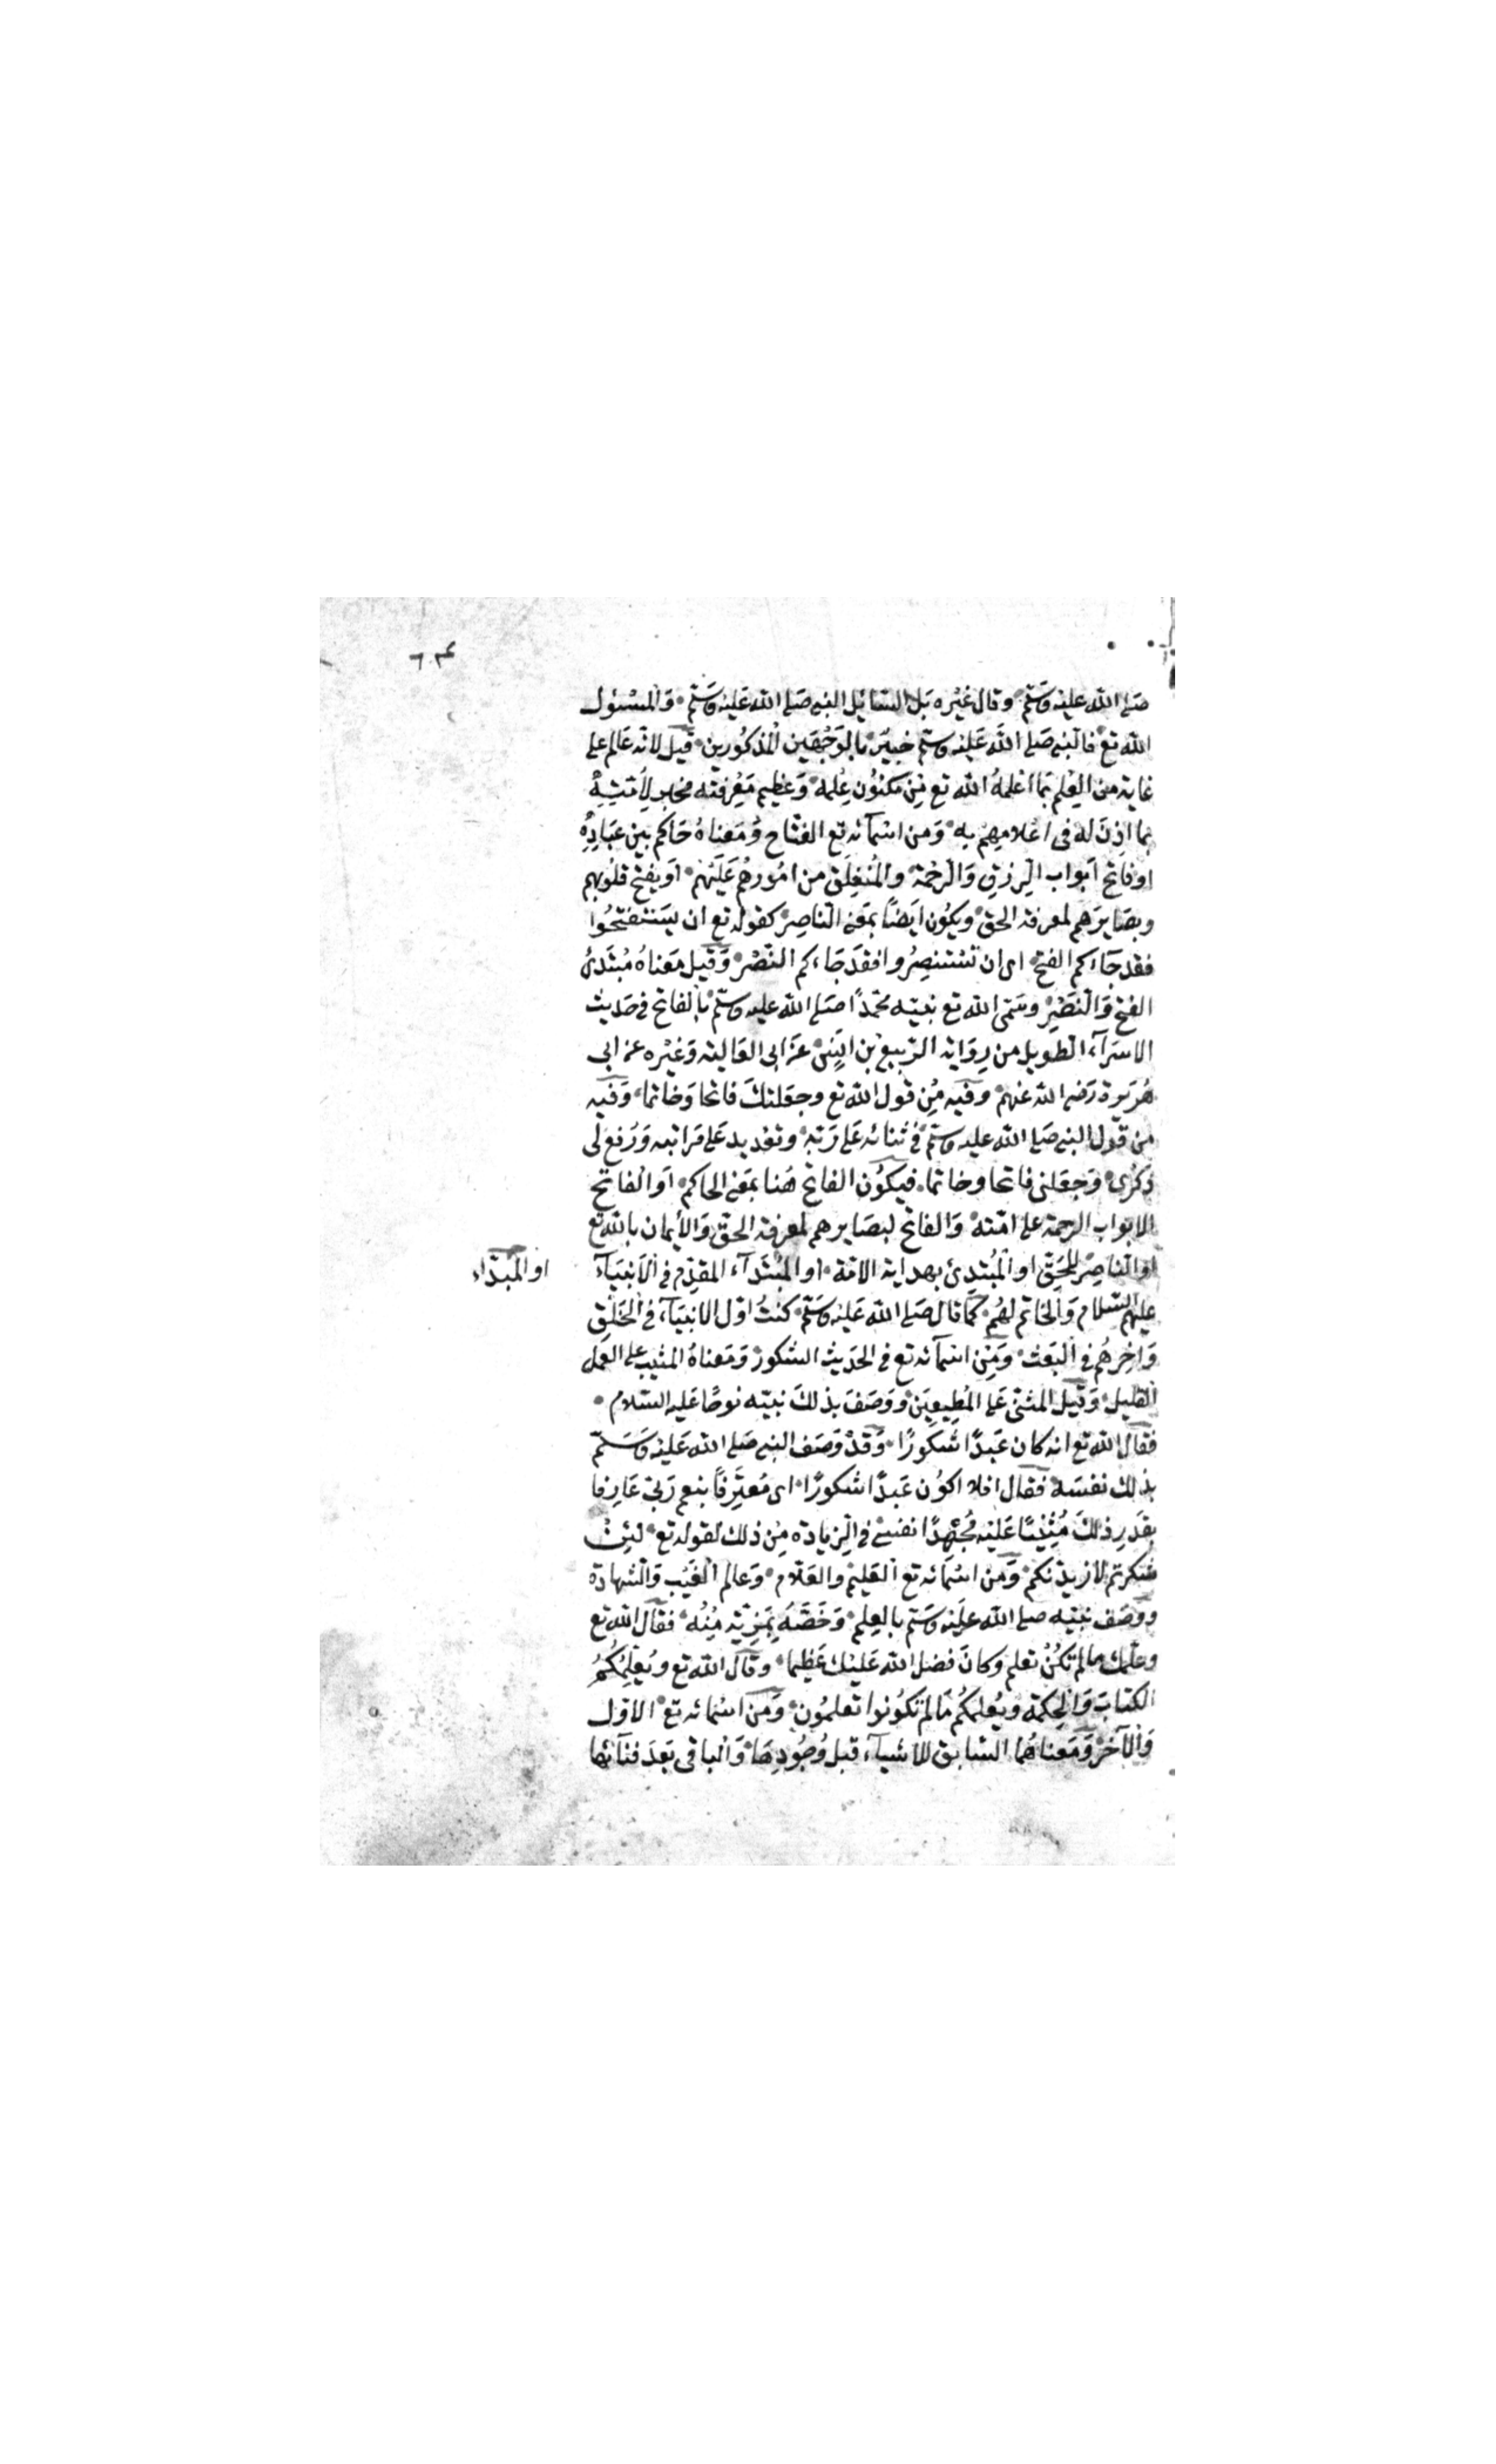 صلى الله عليه وسلم وقال غيره بل السائل النبى صلى الله عليه وسلم والمسئول
الله تع فالنبى صلى الله عليه وسلم خبير بالوجهين المذكورين قيل لانه عالم على
غاية من العلم بما اعلمه الله تع من مكنون علمه وعظيم معرفته مخبر لأمته
بما اذن له فى اعلامهم به ومن اسمآئه تع الفتاح ومعناه حاكم بين عباده
او فاتح ابواب الرزق والرحمة والمنغلق من امورهم عليهم او يفتح قلوبهم
وبصايرهم لمعرفة الحق ويكون ايضا بمعنى الناصر كقوله تع ان يستفتحوا
فقد جاءكم الفتح اى ان تستنصروا فقد جاءكم النصر وقيل معناه مبتدئ
الفتح والنصر وسمى الله تع نبيه محمدا صلى الله عليه وسلم بالفاتح فى حديث
الاسرآء الطويل من رواية الربيع بن انس عن ابى العالية وغيره عن ابى
هريرة رضى الله عنهم وفيه من قول الله تع وجعلتك فاتحا وخاتما وفيه
من قول النبى صلى الله عليه وسلم فى ثنائه على ربه وتعديد على مراتبه ورفع لى
ذكرى وجعلنى فاتحا وخاتما فيكون الفاتح هنا بمعنى الحاكم او الفاتح
الابواب الرحمة على امته والفاتح لبصايرهم لمعرفة الحق والأيمان بالله تع
او الناصر للحق او المبتدئ بهداية الامة او المبتدآء المقدم فى الانبيآء
او المبدّاء
عليهم السلام والخاتم لهم كما قال صلى الله عليه وسلم كنت اول الانبيآء فى الخلق
واخرهم فى البعث ومن اسمآئه تع فى الحديث الشكور ومعناه المثيب على العمل
القليل وقيل المثنى على المطيعين ووصف بذلك نبيه نوحا عليه السلام
فقال الله تع انه كان عبدا شكورا وقد وصف النبى صلى الله عليه وسلم
بذلك نفسه فقال افلا اكون عبدا شكورا اى معترفا بنعم ربى عارفا
بقدر ذلك مثنيا عليه مجتهدا نفسى فى الزيادة من ذلك لقوله تع لئن
شكرتم لازيدنكم ومن اسمائه تع العليم والعلام وعالم الغيب والشهادة
ووصف نبيه صلى الله عليه وسلم بالعلم وخصه بمزية منه فقال الله تع
وعلمك مالم تكن تعلم وكان فضل الله عليك عظيما وقال الله تع ويعلمكم
الكتاب والحكمة ويعلمكم مالم تكونوا تعلمون ومن اسمائه تع الاول
والآخر ومعناهما السابق للاشيآء قبل وجودها والباقى بعد فنآئها